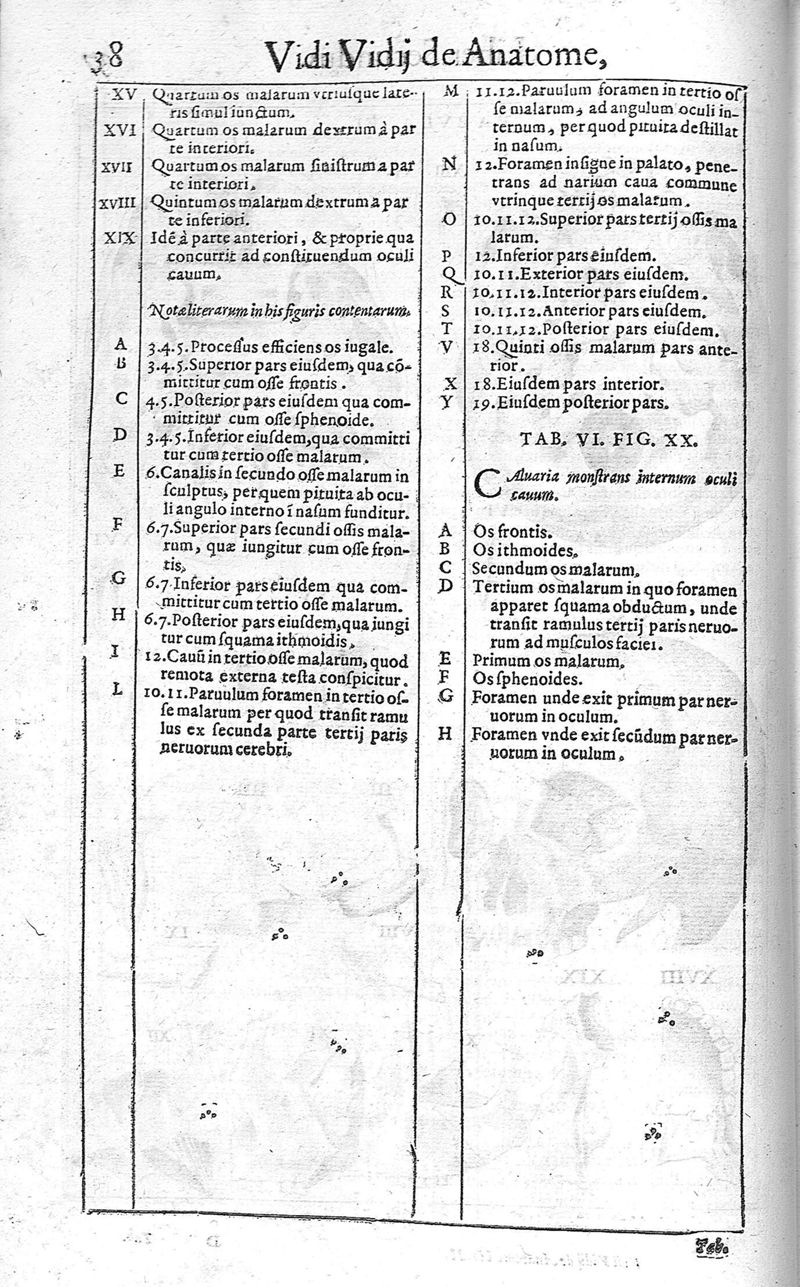 38 Vidi Vidij de Anatome,
XV Quartum os malarum vtriusque late-
ris simul iunctum.
XVI Quartum os malarum dextrum à par
te interiori.
XVII Quartum os malarum sinistrum a par
te interiori.
XVIII Quintum os malarum dextrum a par
te inferiori.
XIX Idē à parte anteriori, & proprie qua
concurrit ad constituendum oculi
cauum.
Notæ literarum in his figuris contentarum.
A 3.4.5. Processus efficiens os iugale.
B 3.4.5. Superior pars eiusdem, qua cō-
mittitur cum osse frontis.
C 4.5. Posterior pars eiusdem qua com-
mittitur cum osse sphenoide.
D 3.4.5. Inferior eiusdem, qua committi
tur cum tertio osse malarum.
E 6. Canalis in secundo osse malarum in
sculptus, per quem pituita ab ocu-
li angulo interno ī nasum funditur.
F 6.7. Superior pars secundi ossis mala-
rum, quæ iungitur cum osse fron-
tis.
G 6.7. Inferior pars eiusdem qua com-
mittitur cum tertio osse malarum.
H 6.7. Posterior pars eiusdem, qua iungi
tur cum squama ithmoidis.
I 12. Cauū in tertio osse malarum, quod
remota externa testa conspicitur.
L 10.11. Paruulum foramen in tertio os-
se malarum per quod transit ramu
lus ex secunda parte tertij paris
neruorum cerebri.
M 11.12. Paruulum foramen in tertio os
se malarum, ad angulum oculi in-
ternum, per quod pituita destillat
in nasum.
N 12. Foramen insigne in palato, pene-
trans ad narium caua commune
vtrinque tertij os malarum.
O 10.11.12. Superior pars tertij ossis ma
larum.
P 12. Inferior pars eiusdem.
Q 10.11. Exterior pars eiusdem.
R 10.11.12. Interior pars eiusdem.
S 10.11.12. Anterior pars eiusdem.
T 10.11.12. Posterior pars eiusdem.
V 18. Quinti ossis malarum pars ante-
rior.
X 18. Eiusdem pars interior.
Y 19. Eiusdem posterior pars.
TAB. VI. FIG. XX.
CAluaria monstrans internum oculi
cauum.
A Os frontis.
B Os ithmoides.
C Secundum os malarum.
D Tertium os malarum in quo foramen
apparet squama obductum, unde
transit ramulus tertij paris neruo-
rum ad musculos faciei.
E Primum os malarum.
F Os sphenoides.
G Foramen unde exit primum par ner-
uorum in oculum.
H Foramen vnde exit secūdum par ner-
uorum in oculum.
Tab.